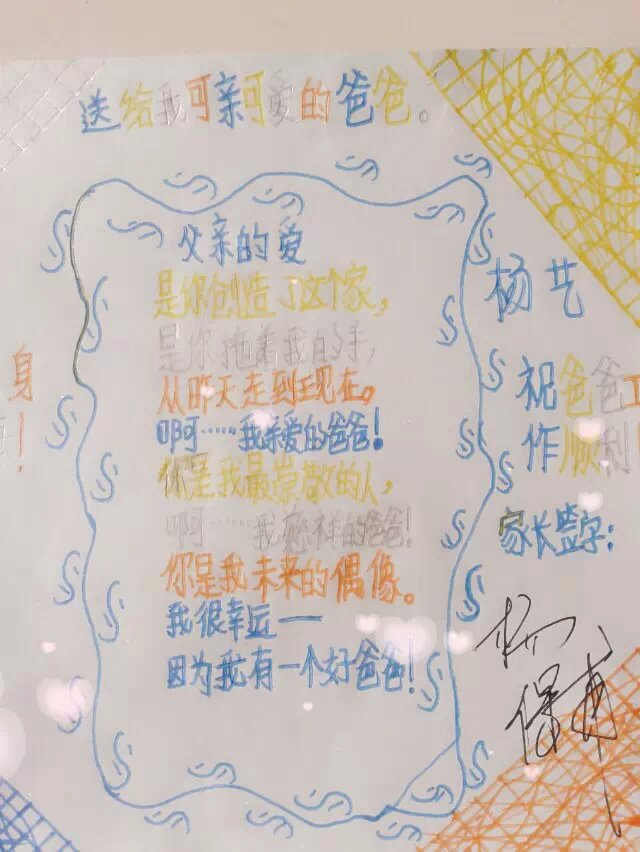 送给我可亲可爱的爸爸。
父亲的爱
是你创造了这个家，
是你拖着我的手，
从昨天走到现在。
啊……我亲爱的爸爸！
你是我最崇敬的人，
啊……我慈祥的爸爸！
你是我未来的偶像。
我很幸运——
因为我有一个好爸爸！
身
！
杨艺
祝爸爸工
作顺利！
家长签字：
杨